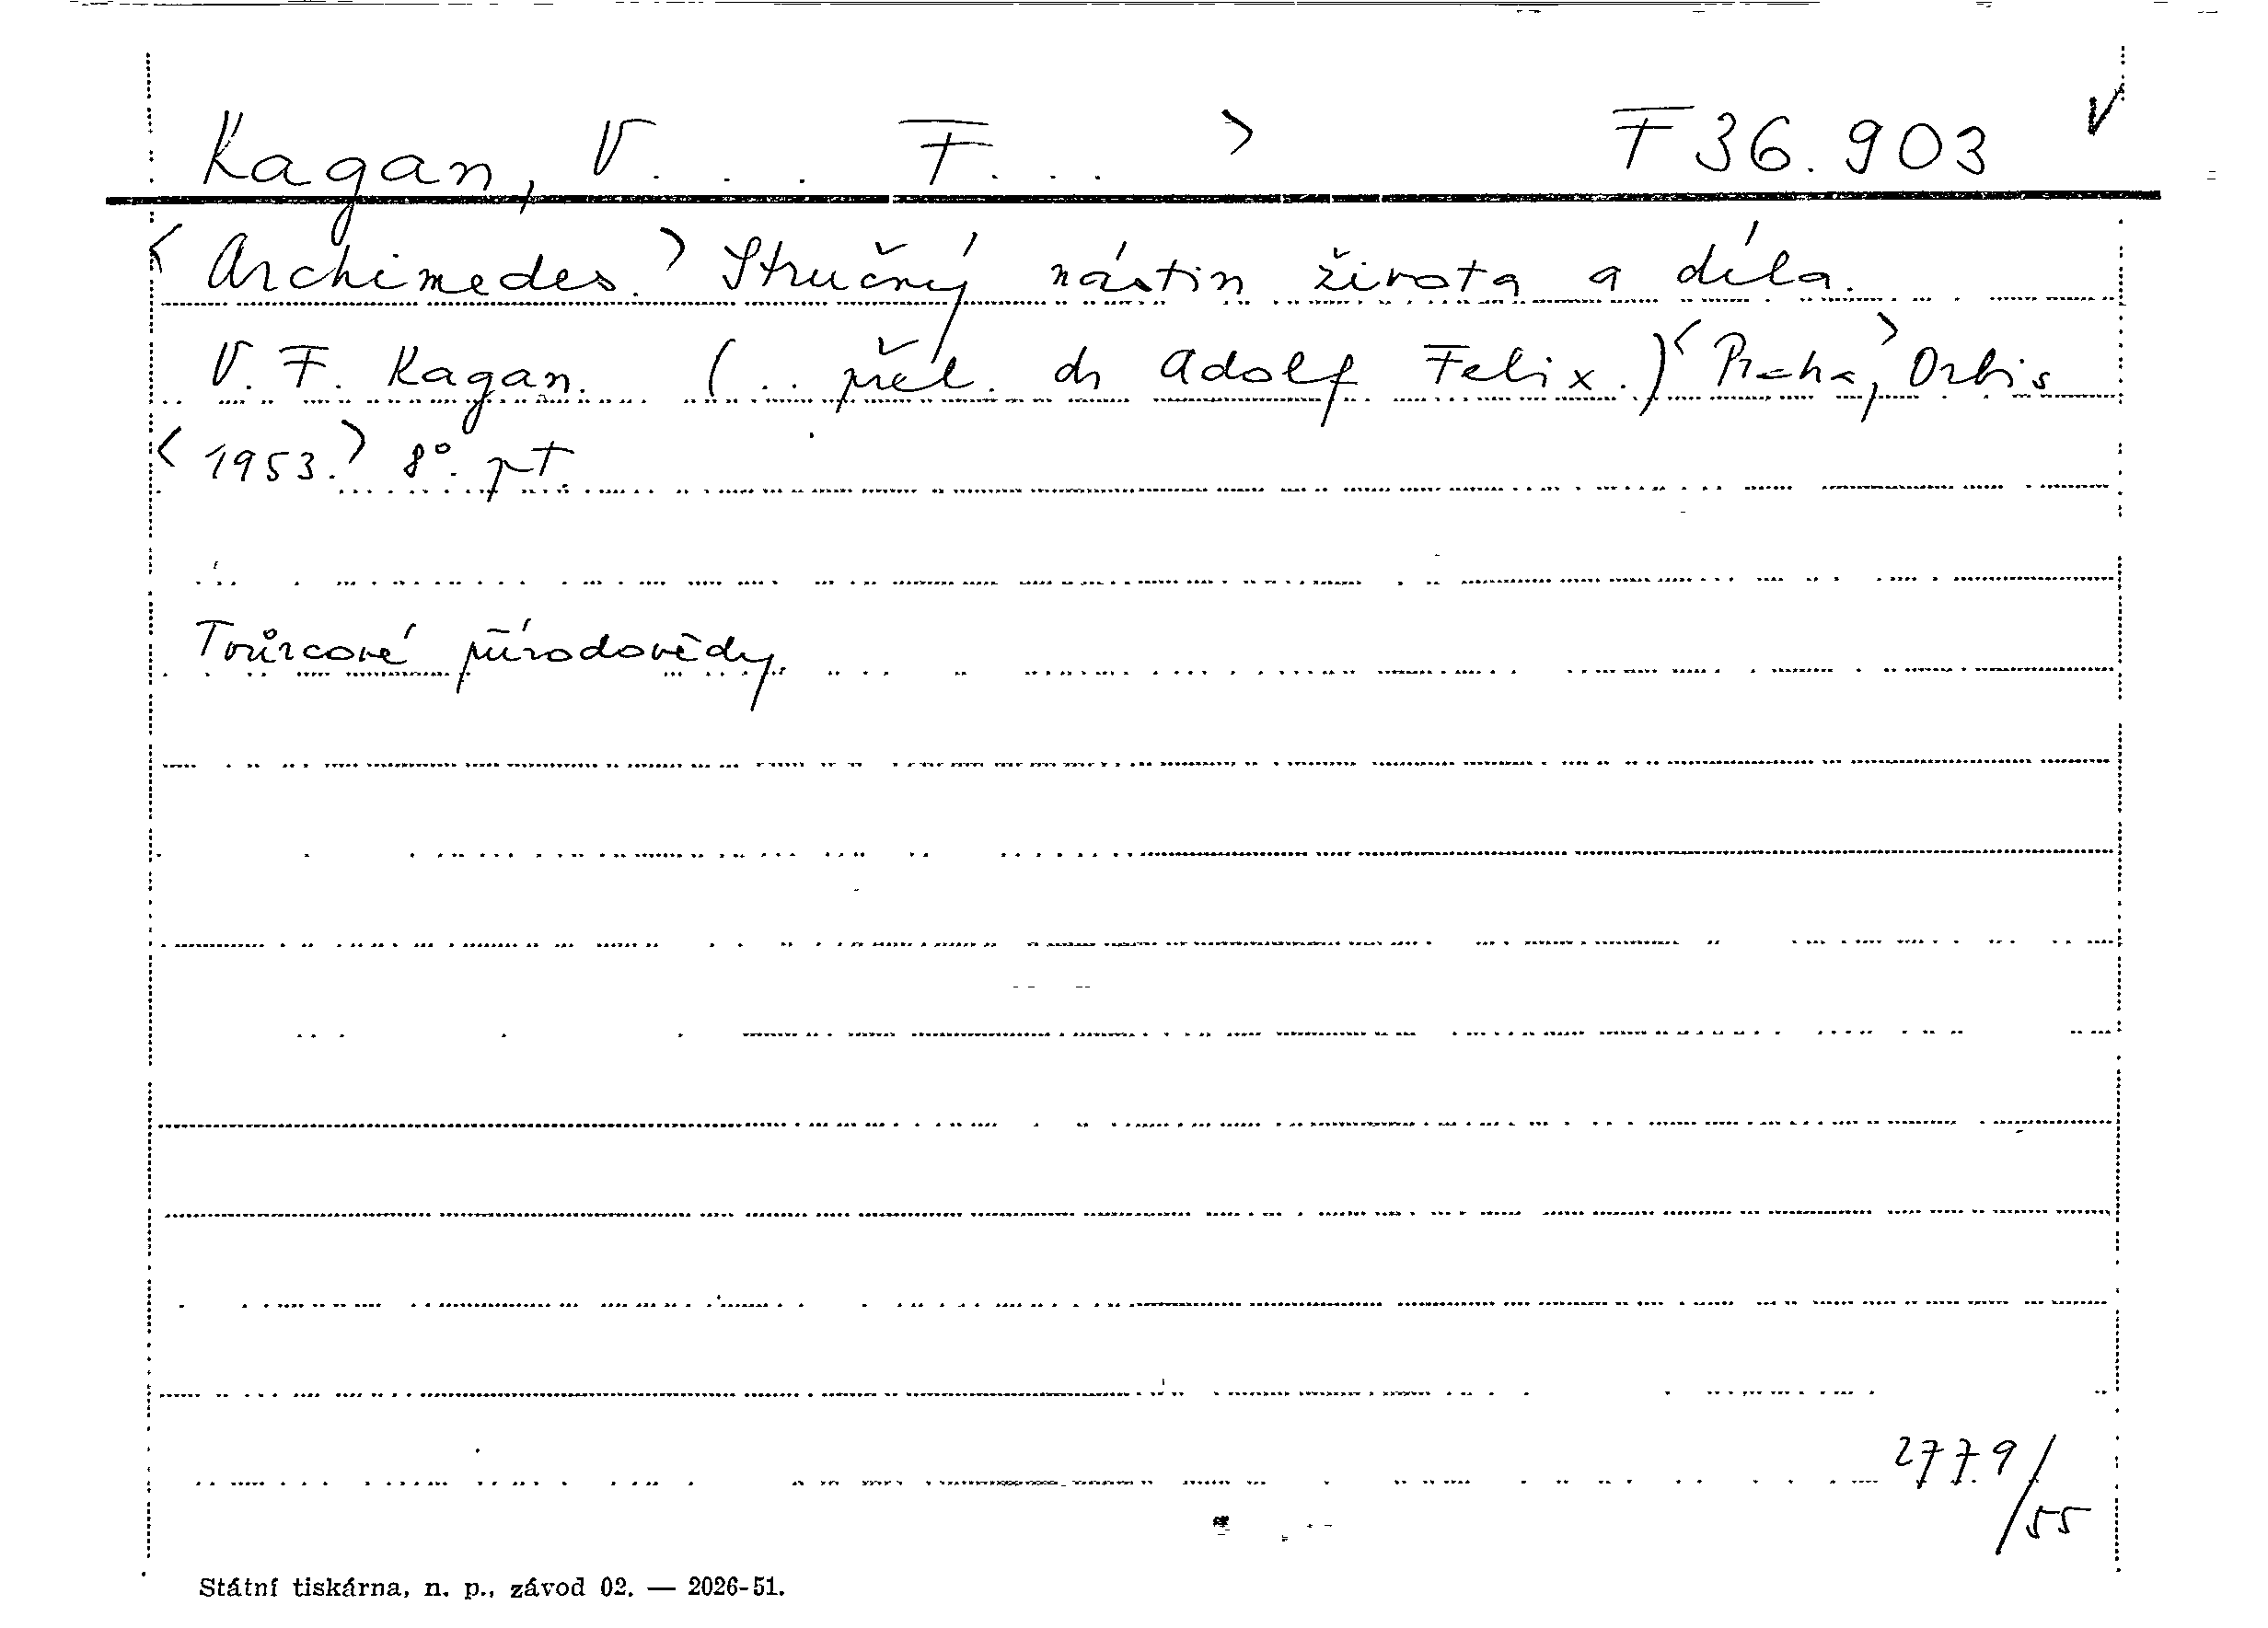 Kagan, V. . . F. . . > F 36.903 V
< Archimedes. > Stručný nástin života a díla.
V. F. Kagan. (.. přel. dr Adolf Felix.) < Praha, > Orbis
< 1953. > 8°. pt.
Tvůrcové přírodovědy.
2779/55
Státní tiskárna, n. p., závod 02. — 2026-51.